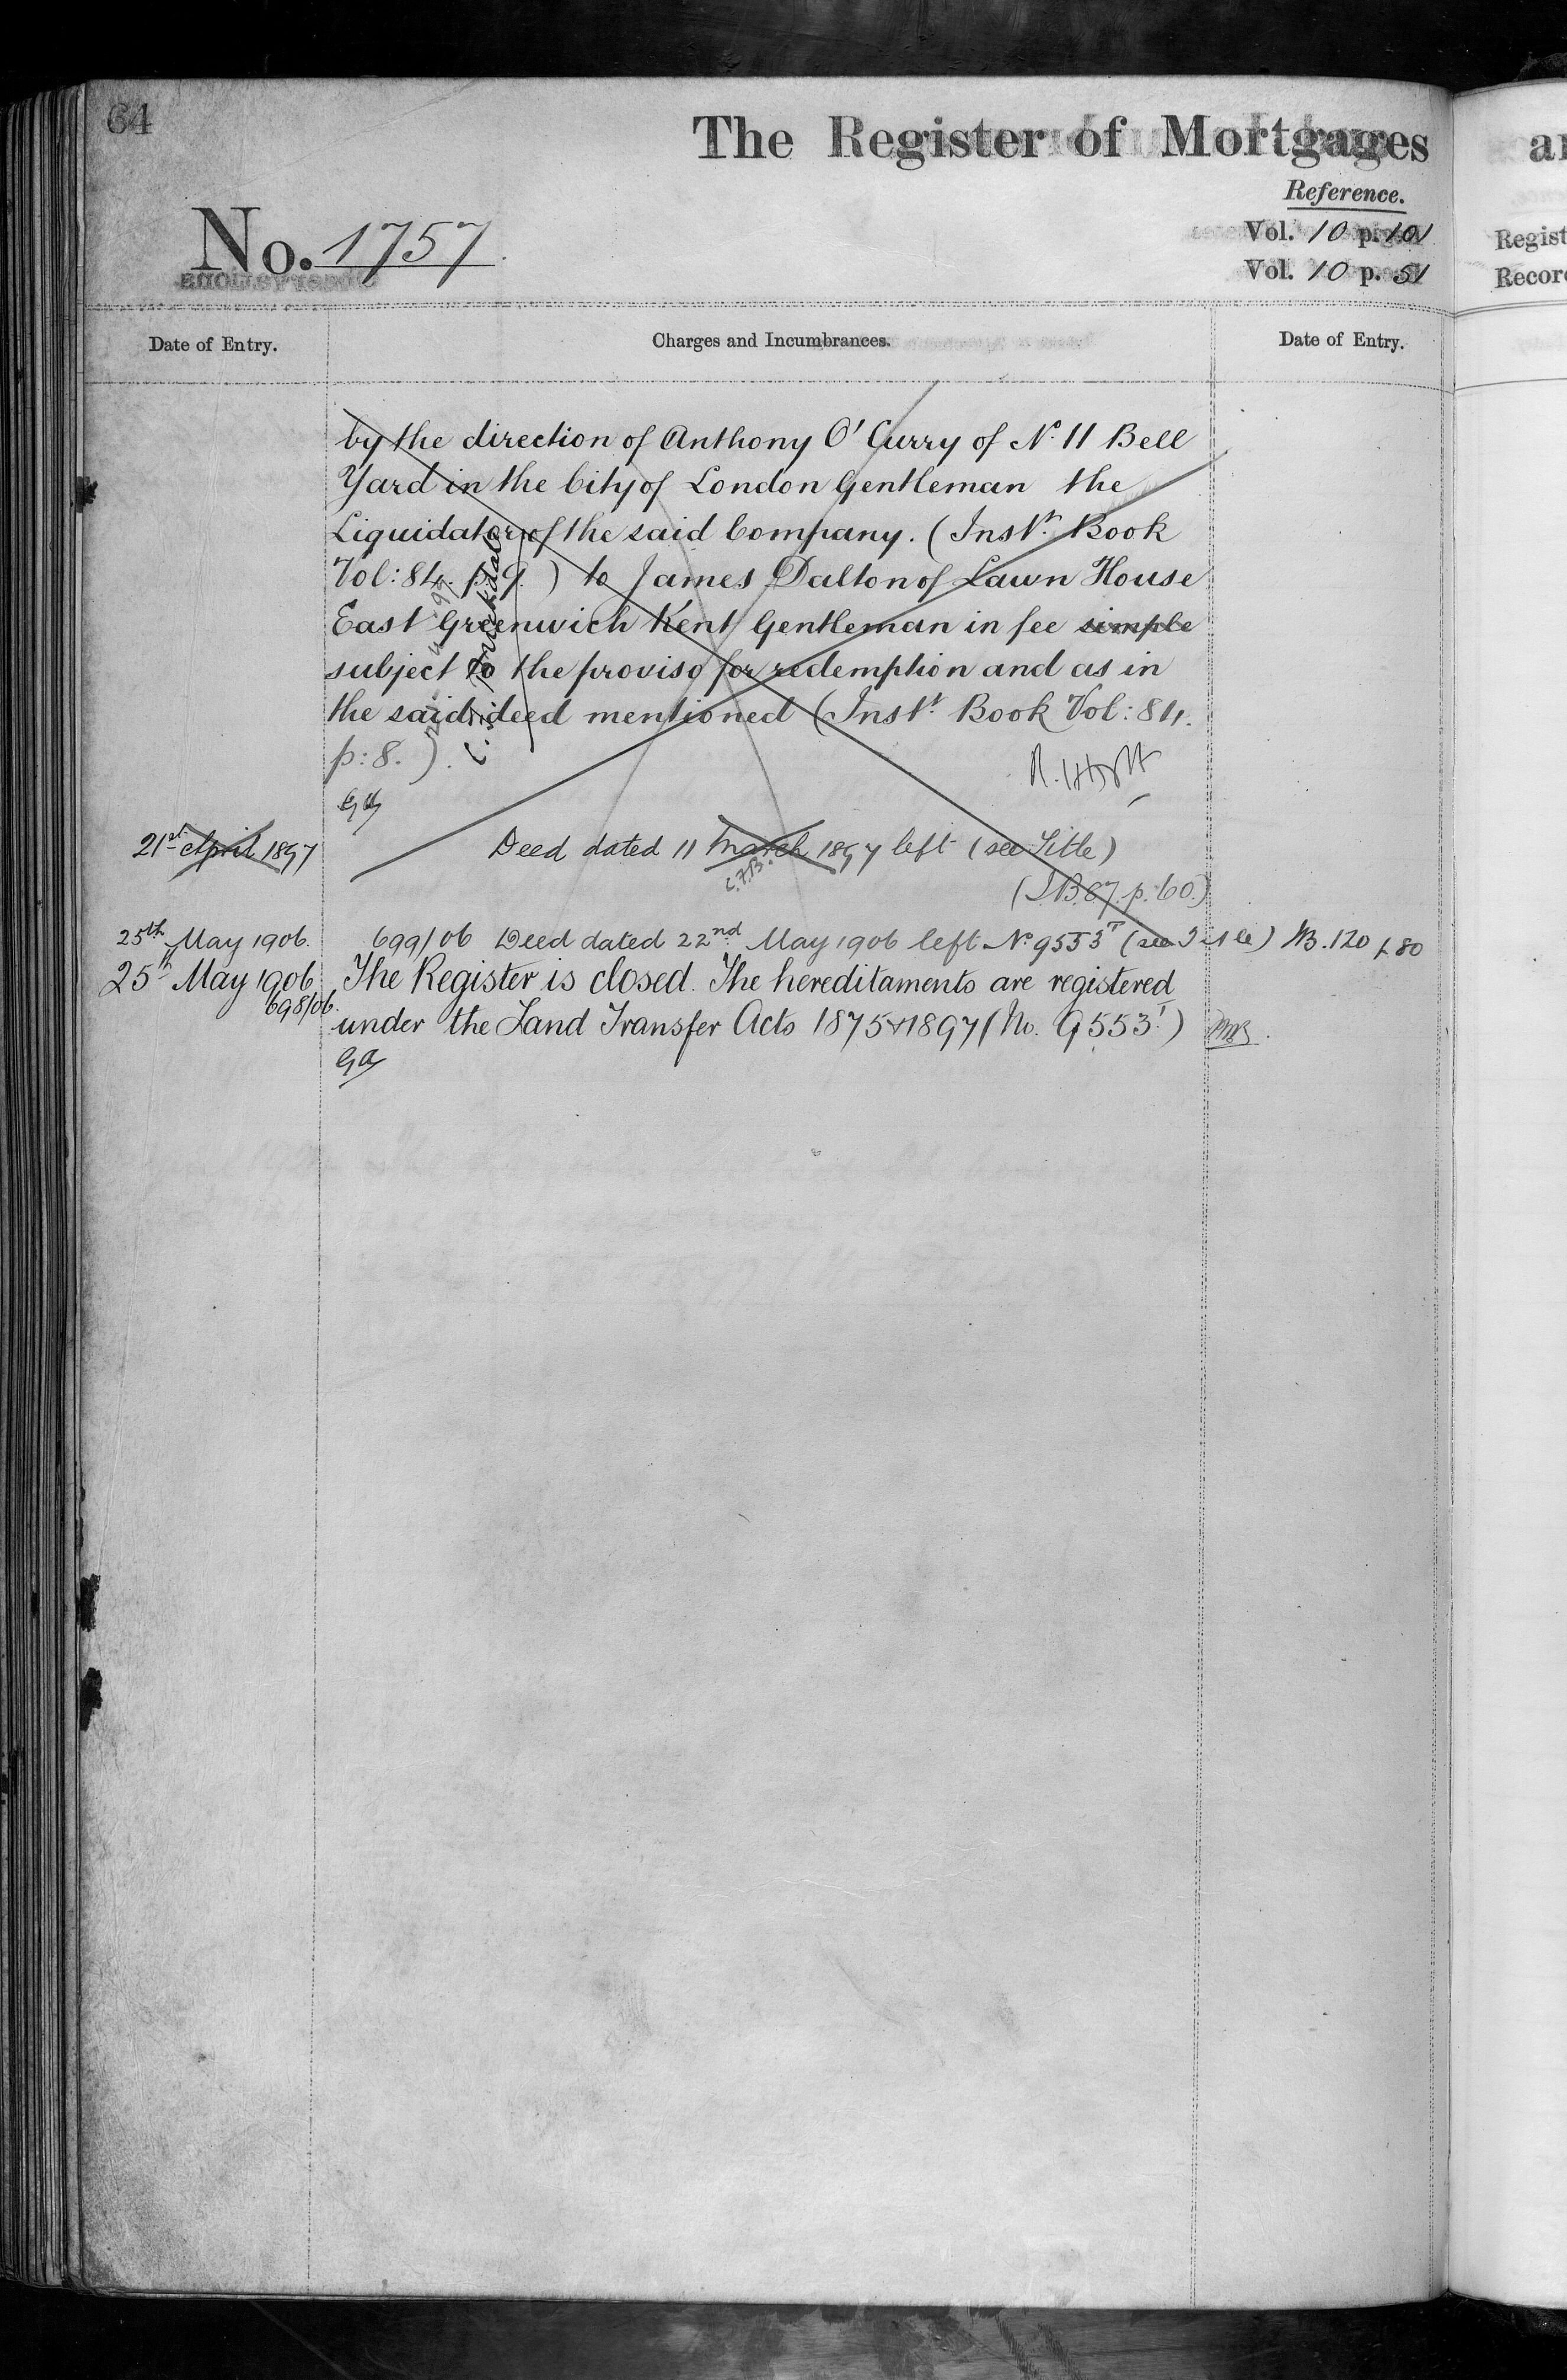 64
The Register of Mortgages
Reference.
No. 1757.
Vol. 10 p. 101
Vol. 10 p. 51
Regist
Record
Date of Entry.
Charges and Incumbrances.
Date of Entry.
by the direction of Anthony O'Curry of No. 11 Bell
Yard in the City of London Gentleman the
Liquidator of the said Company. (Inst. Book
Vol: 84. p. 9.) to James Dalton of Lawn House
East Greenwich Kent Gentleman in fee simple
subject to the proviso for redemption and as in
the said deed mentioned (Inst. Book Vol: 84.
p: 8.).
21st April 1897
Deed dated 11 March 1897 left (see Title)
C.F.B.
(I.B. 87. p. 60.)
25th May 1906.
699/06 Deed dated 22nd May 1906 left No. 9553T (see Title) IB. 120 p 80
25th May 1906
698/06.
The Register is closed. The hereditaments are registered
under the Land Transfer Acts 1875 & 1897 (No. 9553T.)
GA